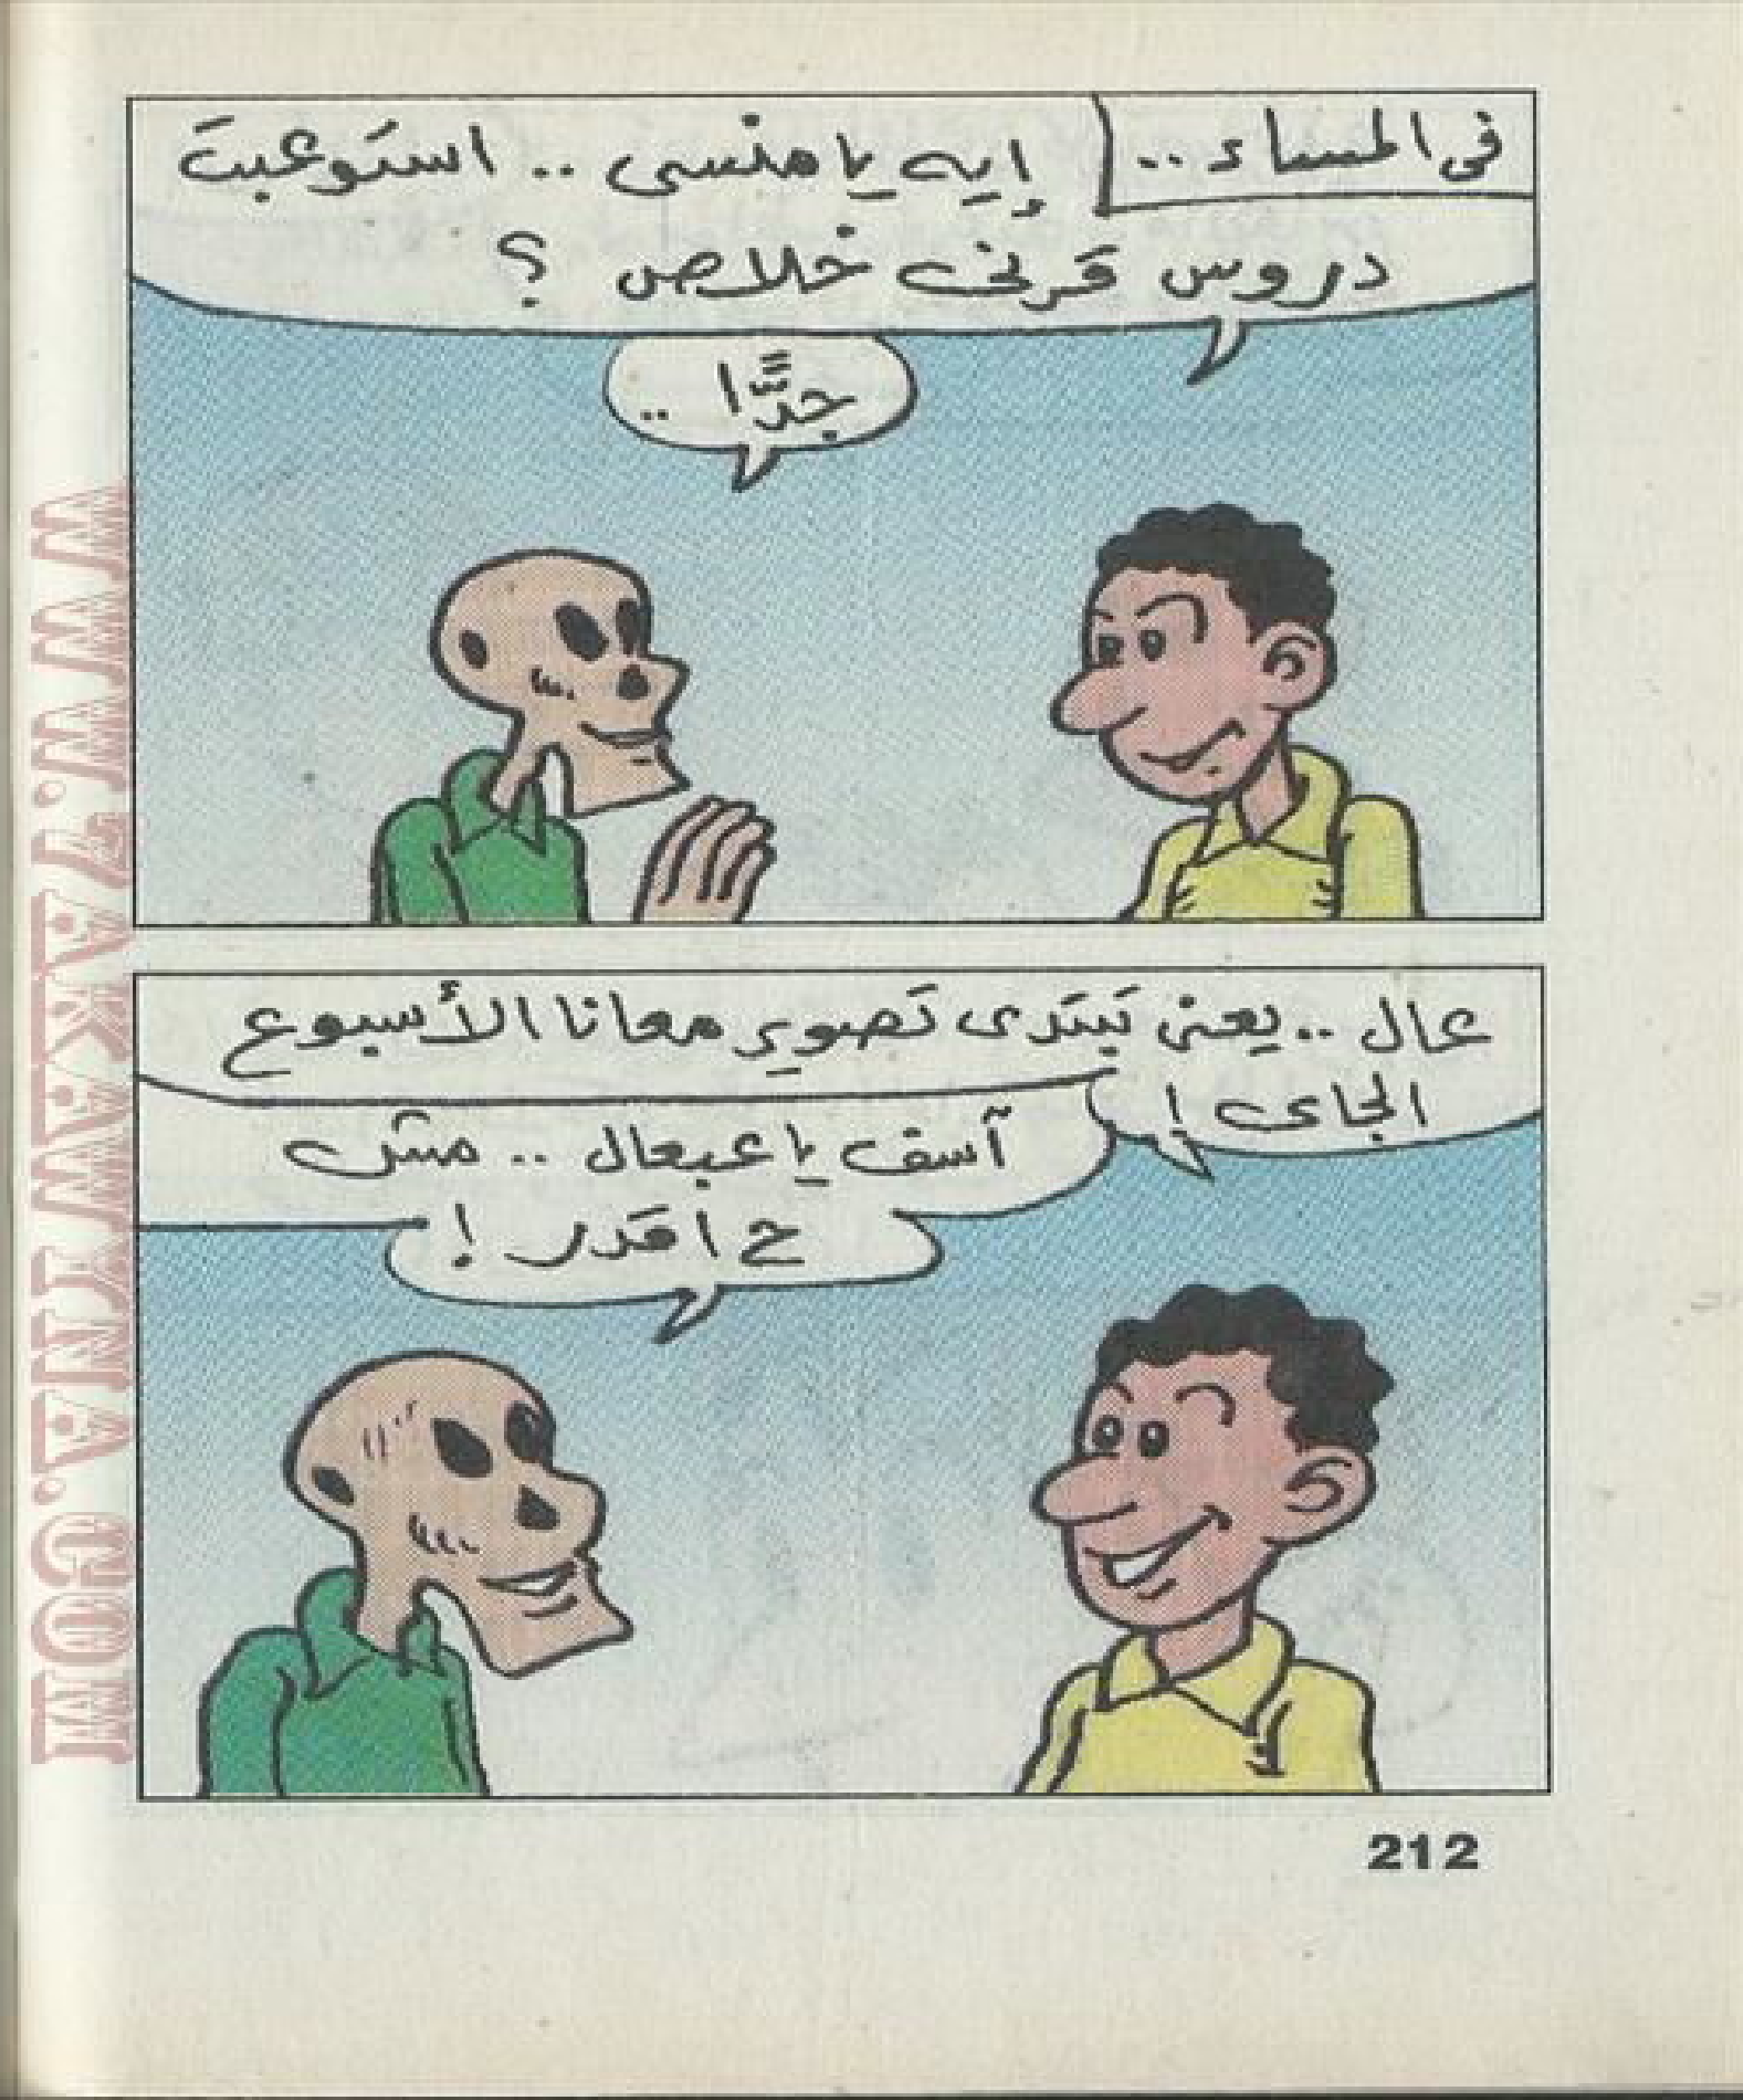 فى المساء ..
إيه يا منسى .. استوعبت
دروس قرنى خلاص ؟
جدًّا ..
عال .. يعنى تبتدى تصوير معانا الأسبوع
الجاى !
آسف يا عبعال .. مش
ح اقدر !
212
WWW.7AKAWINA.COM